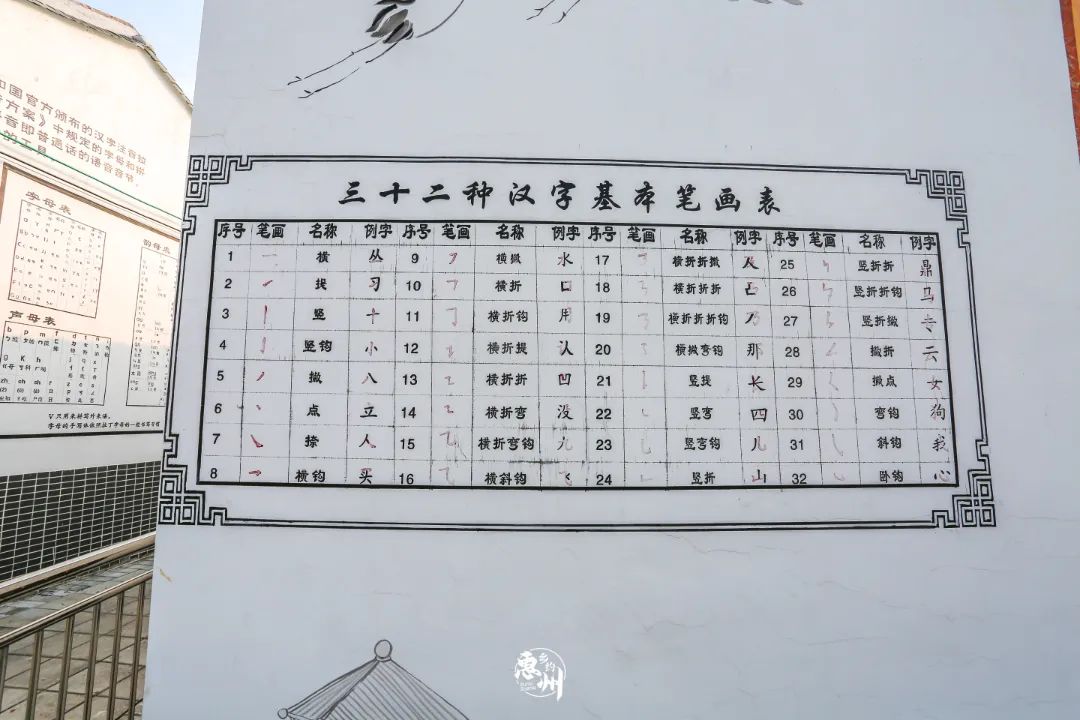 和国官方颁布的汉字注音拉
方案》中规定的字母和拼
音即普通话的语音音节
的工具
字母表
韵母表
声母表
b p m f d
g k h
zh ch sh r
▽只用来拼写外来语。
三十二种汉字基本笔画表
序号 笔画 名称 例字 序号 笔画 名称 例字 序号 笔画 名称 例字 序号 笔画 名称 例字
1 ㇐ 横 丛 9 ㇇ 横撇 水 17 ㇋ 横折折撇 及 25 竖折折 鼎
2 ㇀ 提 习 10 ㇕ 横折 口 18 ㇎ 横折折折 凸 26 ㇉ 竖折折钩 马
3 ㇑ 竖 十 11 ㇆ 横折钩 用 19 ㇡ 横折折折钩 乃 27 竖折撇 寺
4 ㇚ 竖钩 小 12 ㇊ 横折提 认 20 ㇌ 横撇弯钩 那 28 ㇜ 撇折 云
5 ㇒ 撇 八 13 ㇅ 横折折 凹 21 ㇙ 竖提 长 29 ㇛ 撇点 女
6 ㇔ 点 立 14 ㇍ 横折弯 没 22 ㇄ 竖弯 四 30 ㇁ 弯钩 狗
7 ㇏ 捺 人 15 ㇈ 横折弯钩 九 23 ㇟ 竖弯钩 儿 31 ㇂ 斜钩 我
8 ㇖ 横钩 买 16 ⺄ 横斜钩 飞 24 ㇗ 竖折 山 32 ㇃ 卧钩 心
乡约
惠州